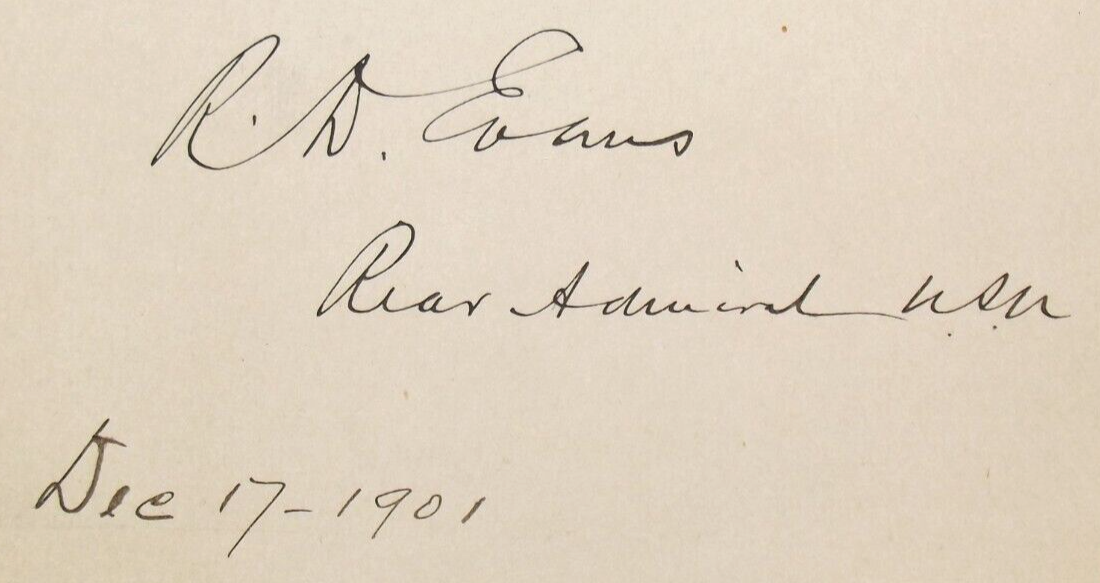 R. D. Evans
Rear Admiral U.S.N
Dec 17-1901